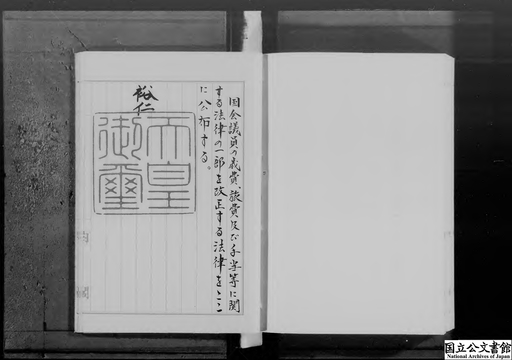 国会議員の歳費、旅費及び手当等に関
する法律の一部を改正する法律をここ
に公布する。
裕仁
天皇
御璽
国立公文書館
National Archives of Japan